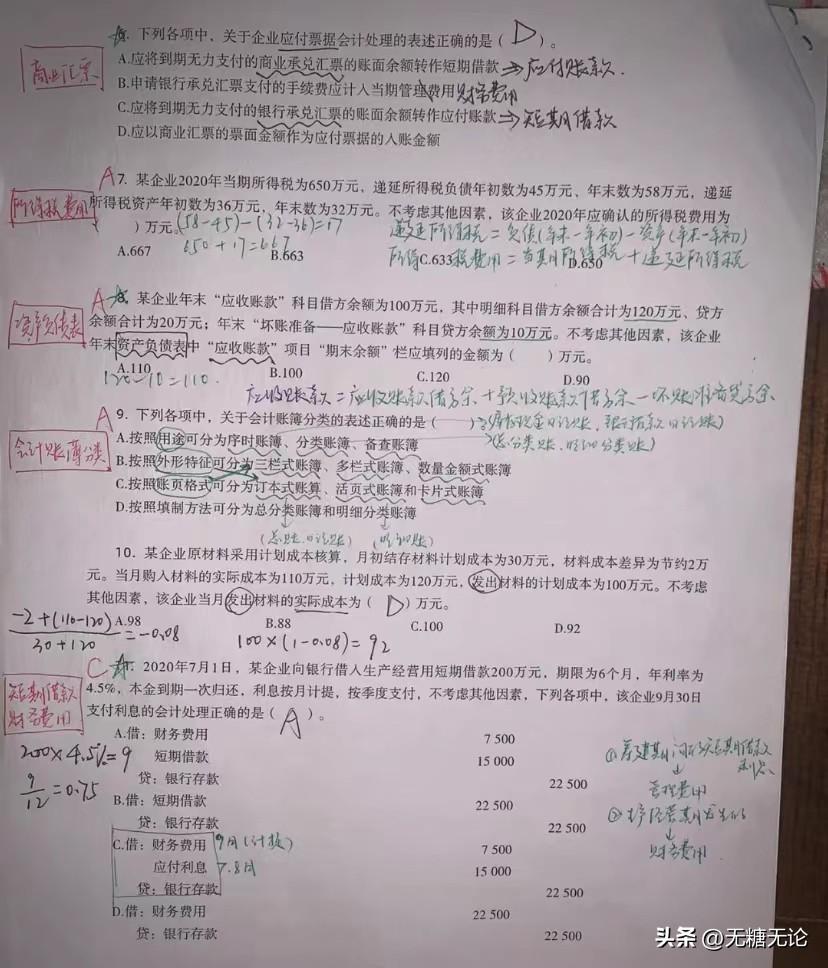 6. 下列各项中，关于企业应付票据会计处理的表述正确的是（ D ）。
商业汇票
A.应将到期无力支付的商业承兑汇票的账面余额转作短期借款 → 应付账款.
B.申请银行承兑汇票支付的手续费应计入当期管理费用 财务费用
C.应将到期无力支付的银行承兑汇票的账面余额转作应付账款 → 短期借款
D.应以商业汇票的票面金额作为应付票据的入账金额
A 7. 某企业2020年当期所得税为650万元，递延所得税负债年初数为45万元、年末数为58万元，递延
所得税费用
所得税资产年初数为36万元，年末数为32万元。不考虑其他因素，该企业2020年应确认的所得税费用为
（ ）万元。(58-45)-(32-36)=17 递延所得税=负债(年末-年初)-资产(年末-年初)
650+17=667 所得税费用=当期所得税+递延所得税
A.667 B.663 C.633 D.650
A 8. 某企业年末“应收账款”科目借方余额为100万元，其中明细科目借方余额合计为120万元、贷方
资产负债表
余额合计为20万元；年末“坏账准备——应收账款”科目贷方余额为10万元。不考虑其他因素，该企业
年末资产负债表中“应收账款”项目“期末余额”栏应填列的金额为（ ）万元。
A.110 B.100 C.120 D.90
120-10=110. 应收账款=应收账款借方余+预收账款借方余-坏账准备贷方余
A 9. 下列各项中，关于会计账簿分类的表述正确的是（ ） (库存现金日记账、银行存款日记账)
会计账簿分类
A.按照用途可分为序时账簿、分类账簿、备查账簿 (总分类账、明细分类账)
B.按照外形特征可分为三栏式账簿、多栏式账簿、数量金额式账簿
C.按照账页格式可分为订本式账算、活页式账簿和卡片式账簿
D.按照填制方法可分为总分类账簿和明细分类账簿
(总账.日记账) (明细账)
10. 某企业原材料采用计划成本核算，月初结存材料计划成本为30万元，材料成本差异为节约2万
元。当月购入材料的实际成本为110万元，计划成本为120万元，发出材料的计划成本为100万元。不考虑
其他因素，该企业当月发出材料的实际成本为（ D ）万元。
-2+(110-120)
30+120
=-0.08
A.98 B.88 C.100 D.92
100×(1-0.08)=92
C 11. 2020年7月1日，某企业向银行借入生产经营用短期借款200万元，期限为6个月，年利率为
短期借款
财务费用
4.5%，本金到期一次归还，利息按月计提，按季度支付，不考虑其他因素，下列各项中，该企业9月30日
支付利息的会计处理正确的是（ A ）。
200×4.5%=9
9
12
=0.75
A.借：财务费用 7 500
短期借款 15 000
贷：银行存款 22 500
B.借：短期借款 22 500
贷：银行存款 22 500
C.借：财务费用 9月(计提) 7 500
应付利息 7.8月 15 000
贷：银行存款 22 500
D.借：财务费用 22 500
贷：银行存款 22 500
①筹建期间的短期借款
利息
↓
管理费用
②生产经营期发生的
↓
财务费用
头条 @无糖无论